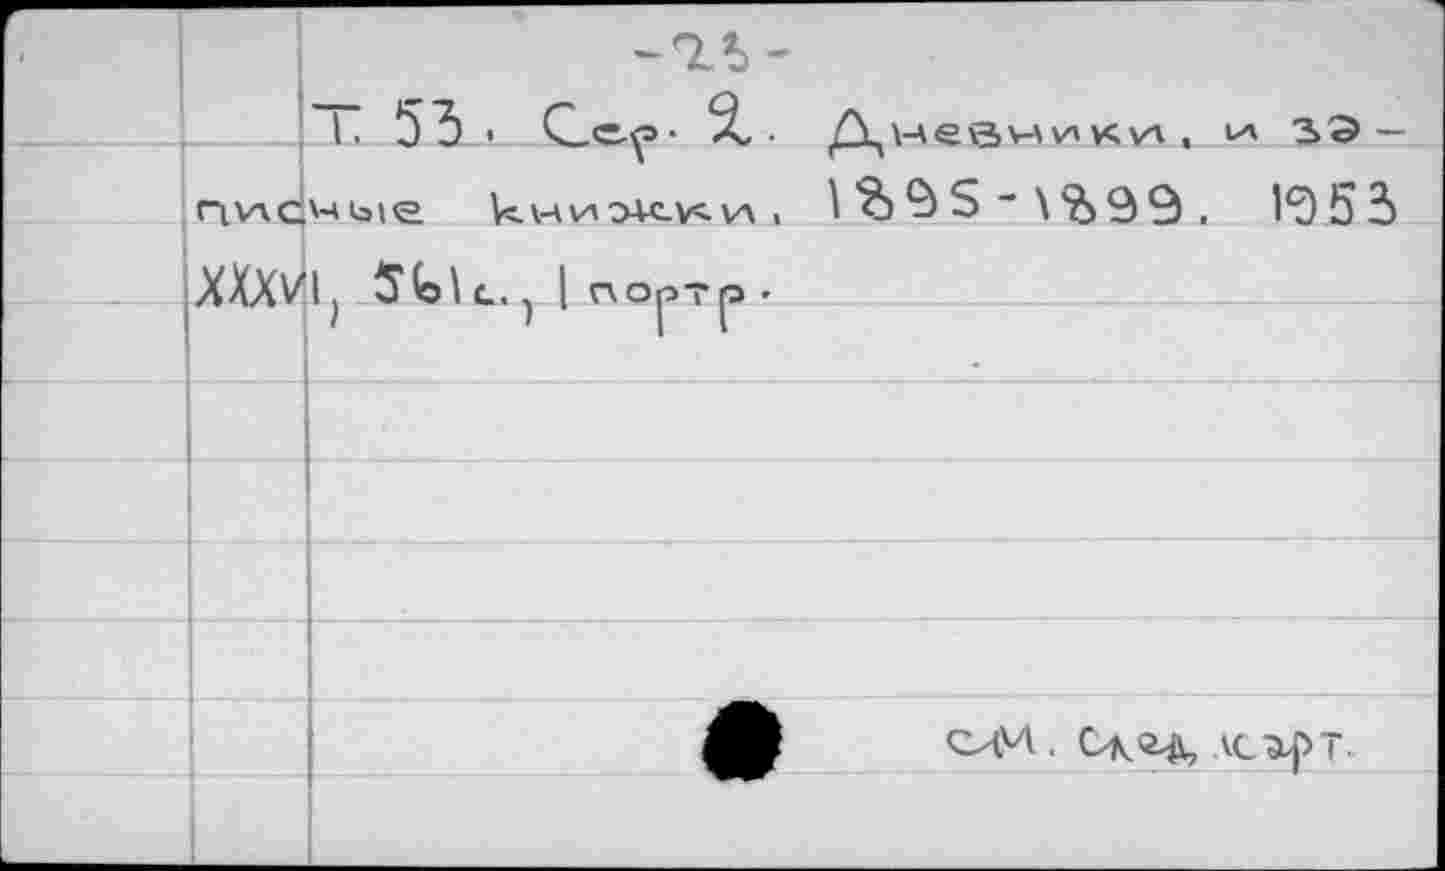 -23-
Т. 53. Сер. 2. Дневники, и за-
писные книжки, 1895-1899. 1953
XXXVI, 561 с., 1 портр.
см. след, карт.